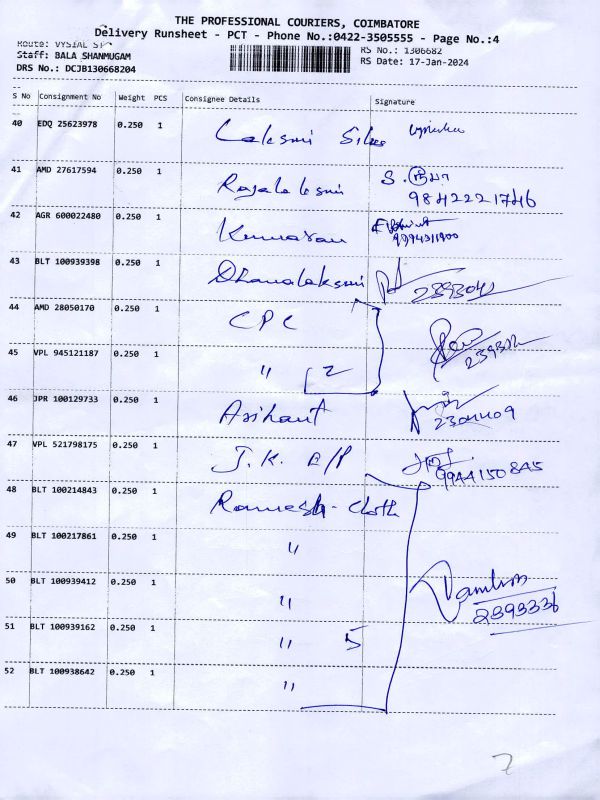 THE PROFESSIONAL COURIERS, COIMBATORE
Delivery Runsheet - PCT - Phone No.:0422-3505555 - Page No.:4
Route: VYSIAL ST
Staff: BALA SHANMUGAM
DRS No.: DCJB130668204
RS No.: 1306682
RS Date: 17-Jan-2024
S No Consignment No Weight PCS Consignee Details Signature
40 EDQ 25623978 0.250 1 Laksmi Silks
41 AMD 27617594 0.250 1 Rajalaksmi S.
9842221746
42 AGR 600022480 0.250 1 Kumaran
43 BLT 100939398 0.250 1 Dhanalaksmi
44 AMD 28050170 0.250 1 CPC
45 VPL 945121187 0.250 1 " 2
46 JPR 100129733 0.250 1 Arihant
47 VPL 521798175 0.250 1 J.K. E/P
9944150845
48 BLT 100214843 0.250 1 Ramesh-Cloth
49 BLT 100217861 0.250 1 "
50 BLT 100939412 0.250 1 "
2393336
51 BLT 100939162 0.250 1 " 5
52 BLT 100938642 0.250 1 "
7